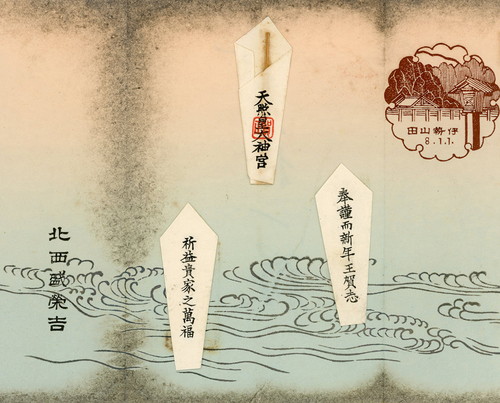 田山勢伊
8.1.1.
奉謹而新年王賀志
天照皇太神宮
祈益貴家之萬福
北西盛榮吉